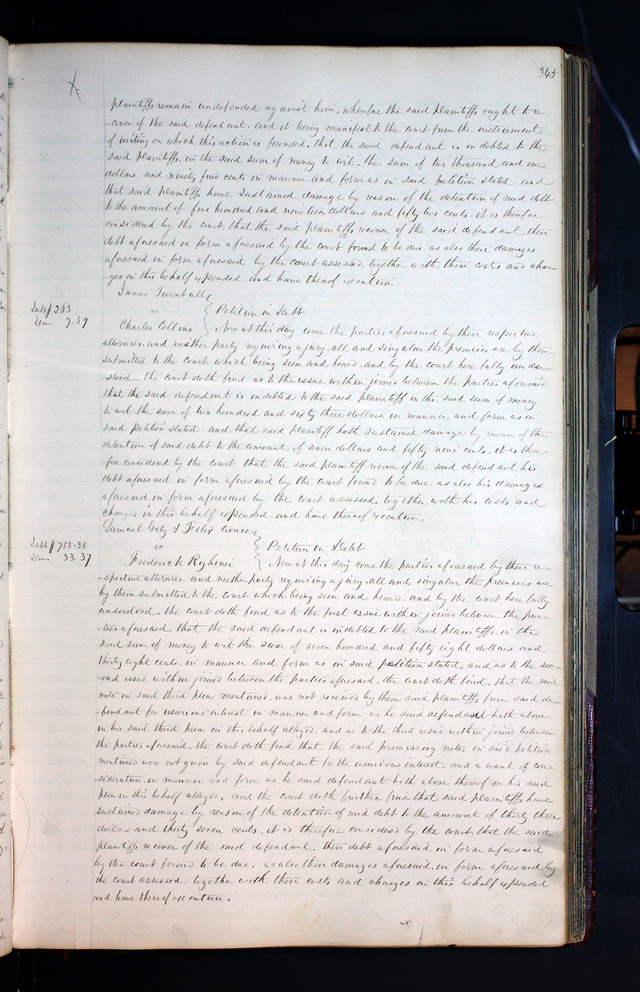 345
plaintiffs remain undefended against him, wherefore the said plaintiffs ought to re
-cover of the said defendant. and it being manifest to the court from the instrument
of writing on which this action is founded, that the said defendant is indebted to the
said plaintiffs in the said sum of money to wit, the sum of two thousand and one
dollars and ninety five cents in manner and form as in said petition stated and
that said plaintiffs have sustained damage by reason of the detention of said debt
to the amount of five hundred and nineteen dollars and fifty two cents. it is therefore
considered by the court that the said plaintiffs recover of the said defendant their
debt aforesaid in form aforesaid by the court found to be due as also their damages
aforesaid in form aforesaid by the court assessed, together with their costs and char-
ges in this behalf expended. and have thereof execution.
James Turnbull
vs Petition in Debt
Debt $263
Dem 7.59
Charles Collins Now at this day come the parties aforesaid by their respective
attornies. and neither party requiring a jury. all and singular the premises are by them
submitted to the court. which being seen and heard. and by the court here fully under
-stood. the court doth find as to the issue within joined between the parties aforesaid
that the said defendant is indebted to the said plaintiff in the said sum of money
to wit the sum of two hundred and sixty three dollars. in manner and form as in
said petition stated. and that said plaintiff hath sustained damage by reason of the
detention of said debt to the amount of seven dollars and fifty nine cents. it is there-
-fore considered by the court that the said plaintiff recover of the said defendant his
debt aforesaid in form aforesaid by the court found to be due. as also his damages
aforesaid in form aforesaid by the court assessed. together with his costs and
charges in this behalf expended. and have thereof execution.
Samuel Gaty & Felix
vs Petition in Debt
Debt $758.38
Dem 33.37
Frederick Now at this day come the parties aforesaid by their re-
-spective attornies. and neither party requiring a jury. all and singular the premises are
by them submitted to the court which being seen and heard. and by the court here fully
understood. the court doth find as to the first issue within joined between the par-
-ties aforesaid. that the said defendant is indebted to the said plaintiffs. in the
said sum of money to wit the sum of seven hundred and fifty eight dollars and
thirty eight cents. in manner and form as in said petition stated, and as to the sec-
-ond issue within joined between the parties aforesaid. the court doth find. that the said
note in said third plea mentioned. was not received by them said plaintiffs from said de-
-fendant for usurious interest in manner and form as he said defendant hath above
in his said third plea in this behalf alleged. and as to the third issue within joined between
the parties aforesaid. the court doth find that the said promissory notes in said petition
mentioned were not given by said defendant to the usurious interest. and a want of con-
-sideration in manner and form as he said defendant hath above thereof in his said
plea in this behalf alleged, and the court doth further find that said plaintiffs have
sustained damage by reason of the detention of said debt to the amount of thirty three
dollars and thirty seven cents. it is therefore considered by the court that the said
plaintiffs recover of the said defendant. their debt aforesaid in form aforesaid
by the court found to be due. as also their damages aforesaid. in form aforesaid by
the court assessed. together with their costs and charges in this behalf expended
and have thereof execution.